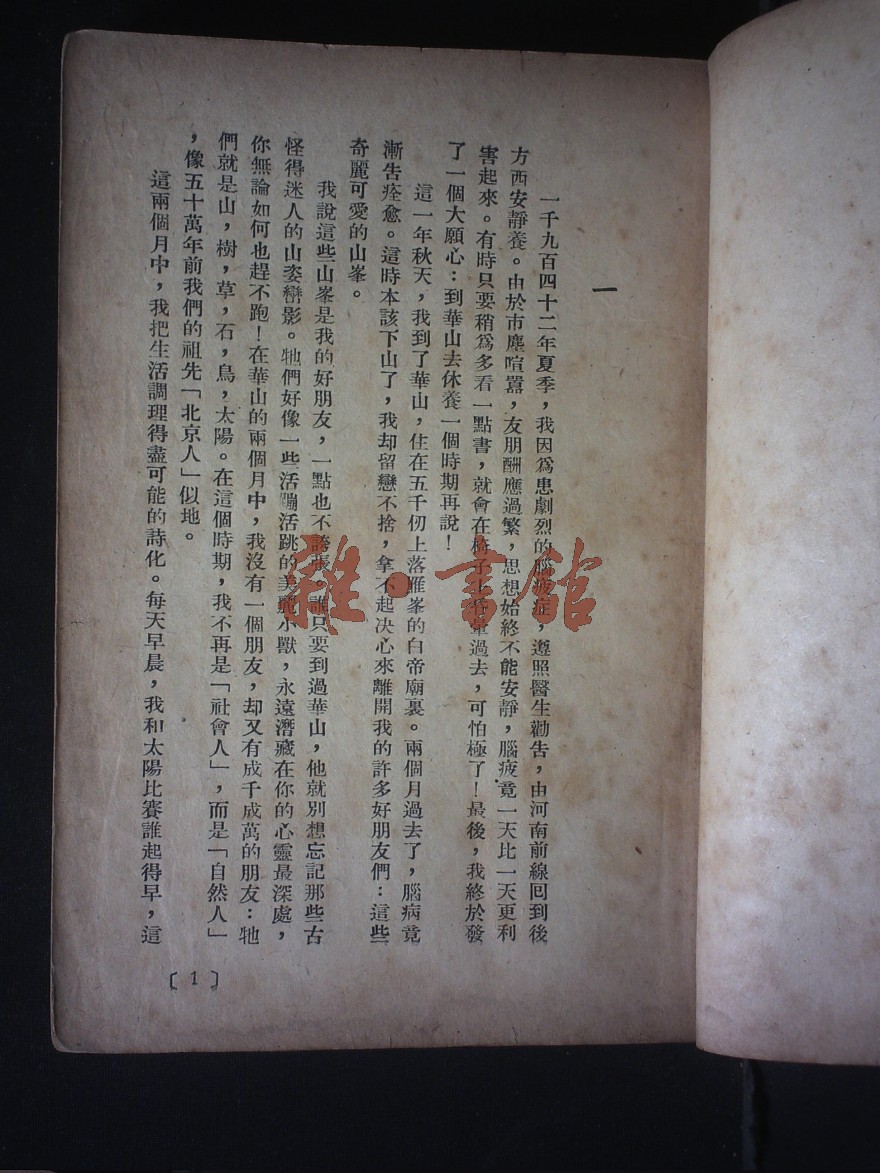 一
一千九百四十二年夏季，我因爲患劇烈的腦疲症，遵照醫生勸告，由河南前線回到後
方西安靜養。由於市塵喧囂，友朋酬應過繁，思想始終不能安靜，腦疲竟一天比一天更利
害起來。有時只要稍爲多看一點書，就會在椅子上昏暈過去，可怕極了！最後，我終於發
了一個大願心：到華山去休養一個時期再說！
這一年秋天，我到了華山，住在五千仞上落雁峯的白帝廟裏。兩個月過去了，腦病竟
漸告痊愈。這時本該下山了，我却留戀不捨，拿不起决心來離開我的許多好朋友們：這些
奇麗可愛的山峯。
我說這些山峯是我的好朋友，一點也不誇張。誰只要到過華山，他就別想忘記那些古
怪得迷人的山姿巒影。牠們好像一些活蹦活跳的美麗小獸，永遠潛藏在你的心靈最深處，
你無論如何也趕不跑！在華山的兩個月中，我沒有一個朋友，却又有成千成萬的朋友：牠
們就是山，樹，草，石，鳥，太陽。在這個時期，我不再是「社會人」，而是「自然人」
，像五十萬年前我們的祖先「北京人」似地。
這兩個月中，我把生活調理得盡可能的詩化。每天早晨，我和太陽比賽誰起得早，這
〔1〕
雜·書館